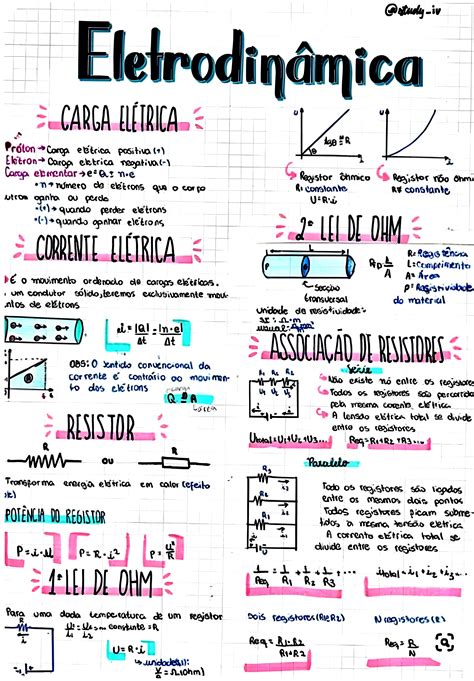 @study_iv
Eletrodinâmica
CARGA ELÉTRICA
Próton → Carga elétrica positiva (+)
Elétron → Carga elétrica negativa (-)
Carga elementar → e
Q = n·e
• n → número de elétrons que o corpo
ganha ou perde
• (+) → quando perder elétrons
• (-) → quando ganhar elétrons
CORRENTE ELÉTRICA
É o movimento ordenado de cargas elétricas.
um condutor sólido, teremos exclusivamente movi-
mentos de elétrons
i = |Q|/Δt = |n·e|/Δt
OBS: O sentido convencional da
corrente é contrário ao movimen-
to dos elétrons
Q = A
RESISTOR
R
OU
R
Transforma energia elétrica em calor (efeito
POTÊNCIA DO RESISTOR
P = i·U
P = R·i²
P = U²/R
1ª LEI DE OHM
Para uma dada temperatura de um resistor
= constante = R
R
i
U = R·i
→ unidades:
V/A = Ω (Ohm)
U
θ
i
Resistor ôhmico
R: constante
U = R·i
U
i
Resistor não ôhmi
R≠ constante
2ª LEI DE OHM
L
P
A
Secção
transversal
R = Resistência
L = Comprimento
A = Área
ρ = Resistividade
do material
unidade de resistividade:
SI: Ω·m
usual:
ASSOCIAÇÃO DE RESISTORES
Série
R1 R2 R3
U1 U2 U3
Não existe nó entre os resistores
Todos os resistores são percorridos
pela mesma corrente elétrica
A tensão elétrica total se divide
entre os resistores
Utotal = U1 + U2 + U3...
Req = R1 + R2 + R3...
Paralelo
R3
R2
R1
Todo os resistores são ligados
entre os mesmos dois pontos
Todos resistores ficam subme-
tidos à mesma tensão elétrica
A corrente elétrica total se
divide entre os resistores
1/Req = 1/R1 + 1/R2 + 1/R3 + ...
itotal = i1 + i2 + i3...
Dois resistores (R1 e R2)
N resistores (R)
Req = R1·R2/R1+R2
Req = R/N